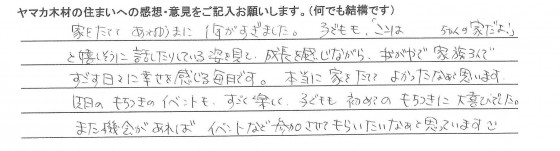 ヤマカ木材の住まいへの感想・意見をご記入お願いします。(何でも結構です)
家をたてて あっとゆうまに 1年がすぎました。 子どもも、「ここは ちゃんの家だよ」
と嬉しそうに 話したりしている姿を見て、成長を感じながら、わがやで 家族3人で
すごす日々に 幸せを感じる毎日です。 本当に 家をたてて よかったなぁて思います。
先日の もちつきの イベントも、すごく楽しく、子どもも 初めての もちつきに 大喜びでした。
また機会があれば イベントなど 参加させてもらいたいなあと 思っています